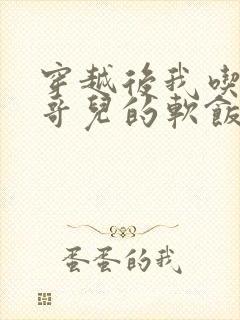 穿越後我喫
哥兒的軟飯
蛋蛋的我